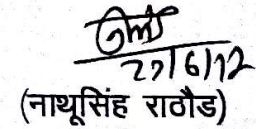 27/6/12
(नाथूसिंह राठौड)